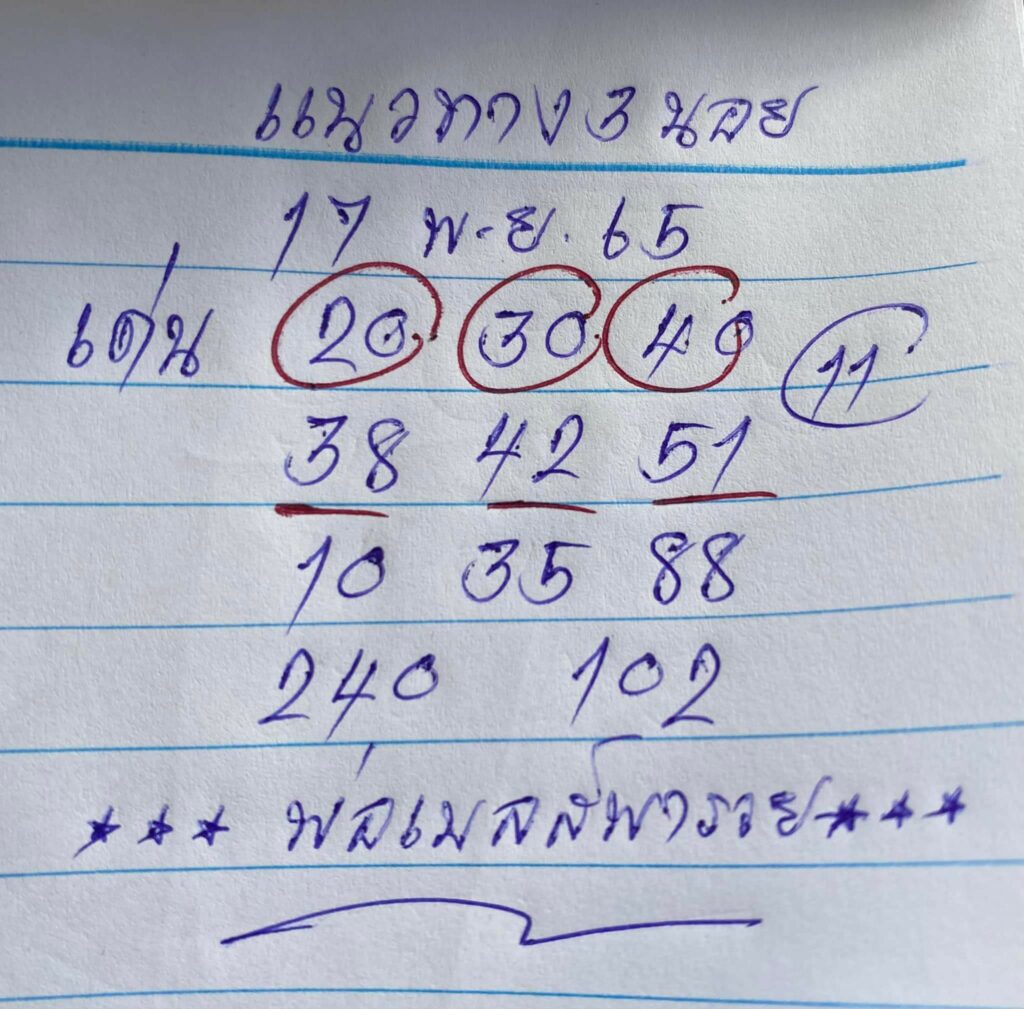 แนวทาง 3 นอย
17 พ.ย. 65
เด่น 20 30 40 11
38 42 51
10 35 88
240 102
*** พ่อเมลล์พารวย ***